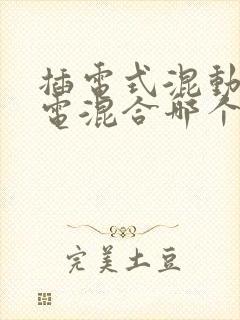 插電式混動
電混合哪个
完美土豆